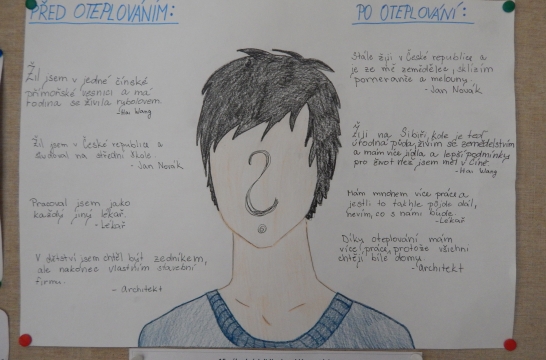 PŘED OTEPLOVÁNÍM:
Žil jsem v jedné čínské
přímořské vesnici a má
rodina se živila rybolovem.
-Hai Wang
Žil jsem v České republice a
studoval na střední škole.
- Jan Novák
Pracoval jsem jako
každý jiný lékař.
-Lékař
V dětství jsem chtěl být zedníkem,
ale nakonec vlastním stavební
firmu.
- Architekt
PO OTEPLOVÁNÍ:
Stále žiji v České republice a
je ze mě zemědělec, sklízím
pomeranče a melouny.
- Jan Novák
Žiji na Sibiři, kde je teď
úrodná půda, živím se zemědělstvím
a mám více jídla a lepší podmínky
pro život než jsem měl v Číně.
- Hai Wang
Mám mnohem více práce a
jestli to takhle půjde dál,
nevím, co s námi bude.
-Lékař
Díky oteplování mám
více práce, protože všichni
chtějí bílé domy.
- architekt